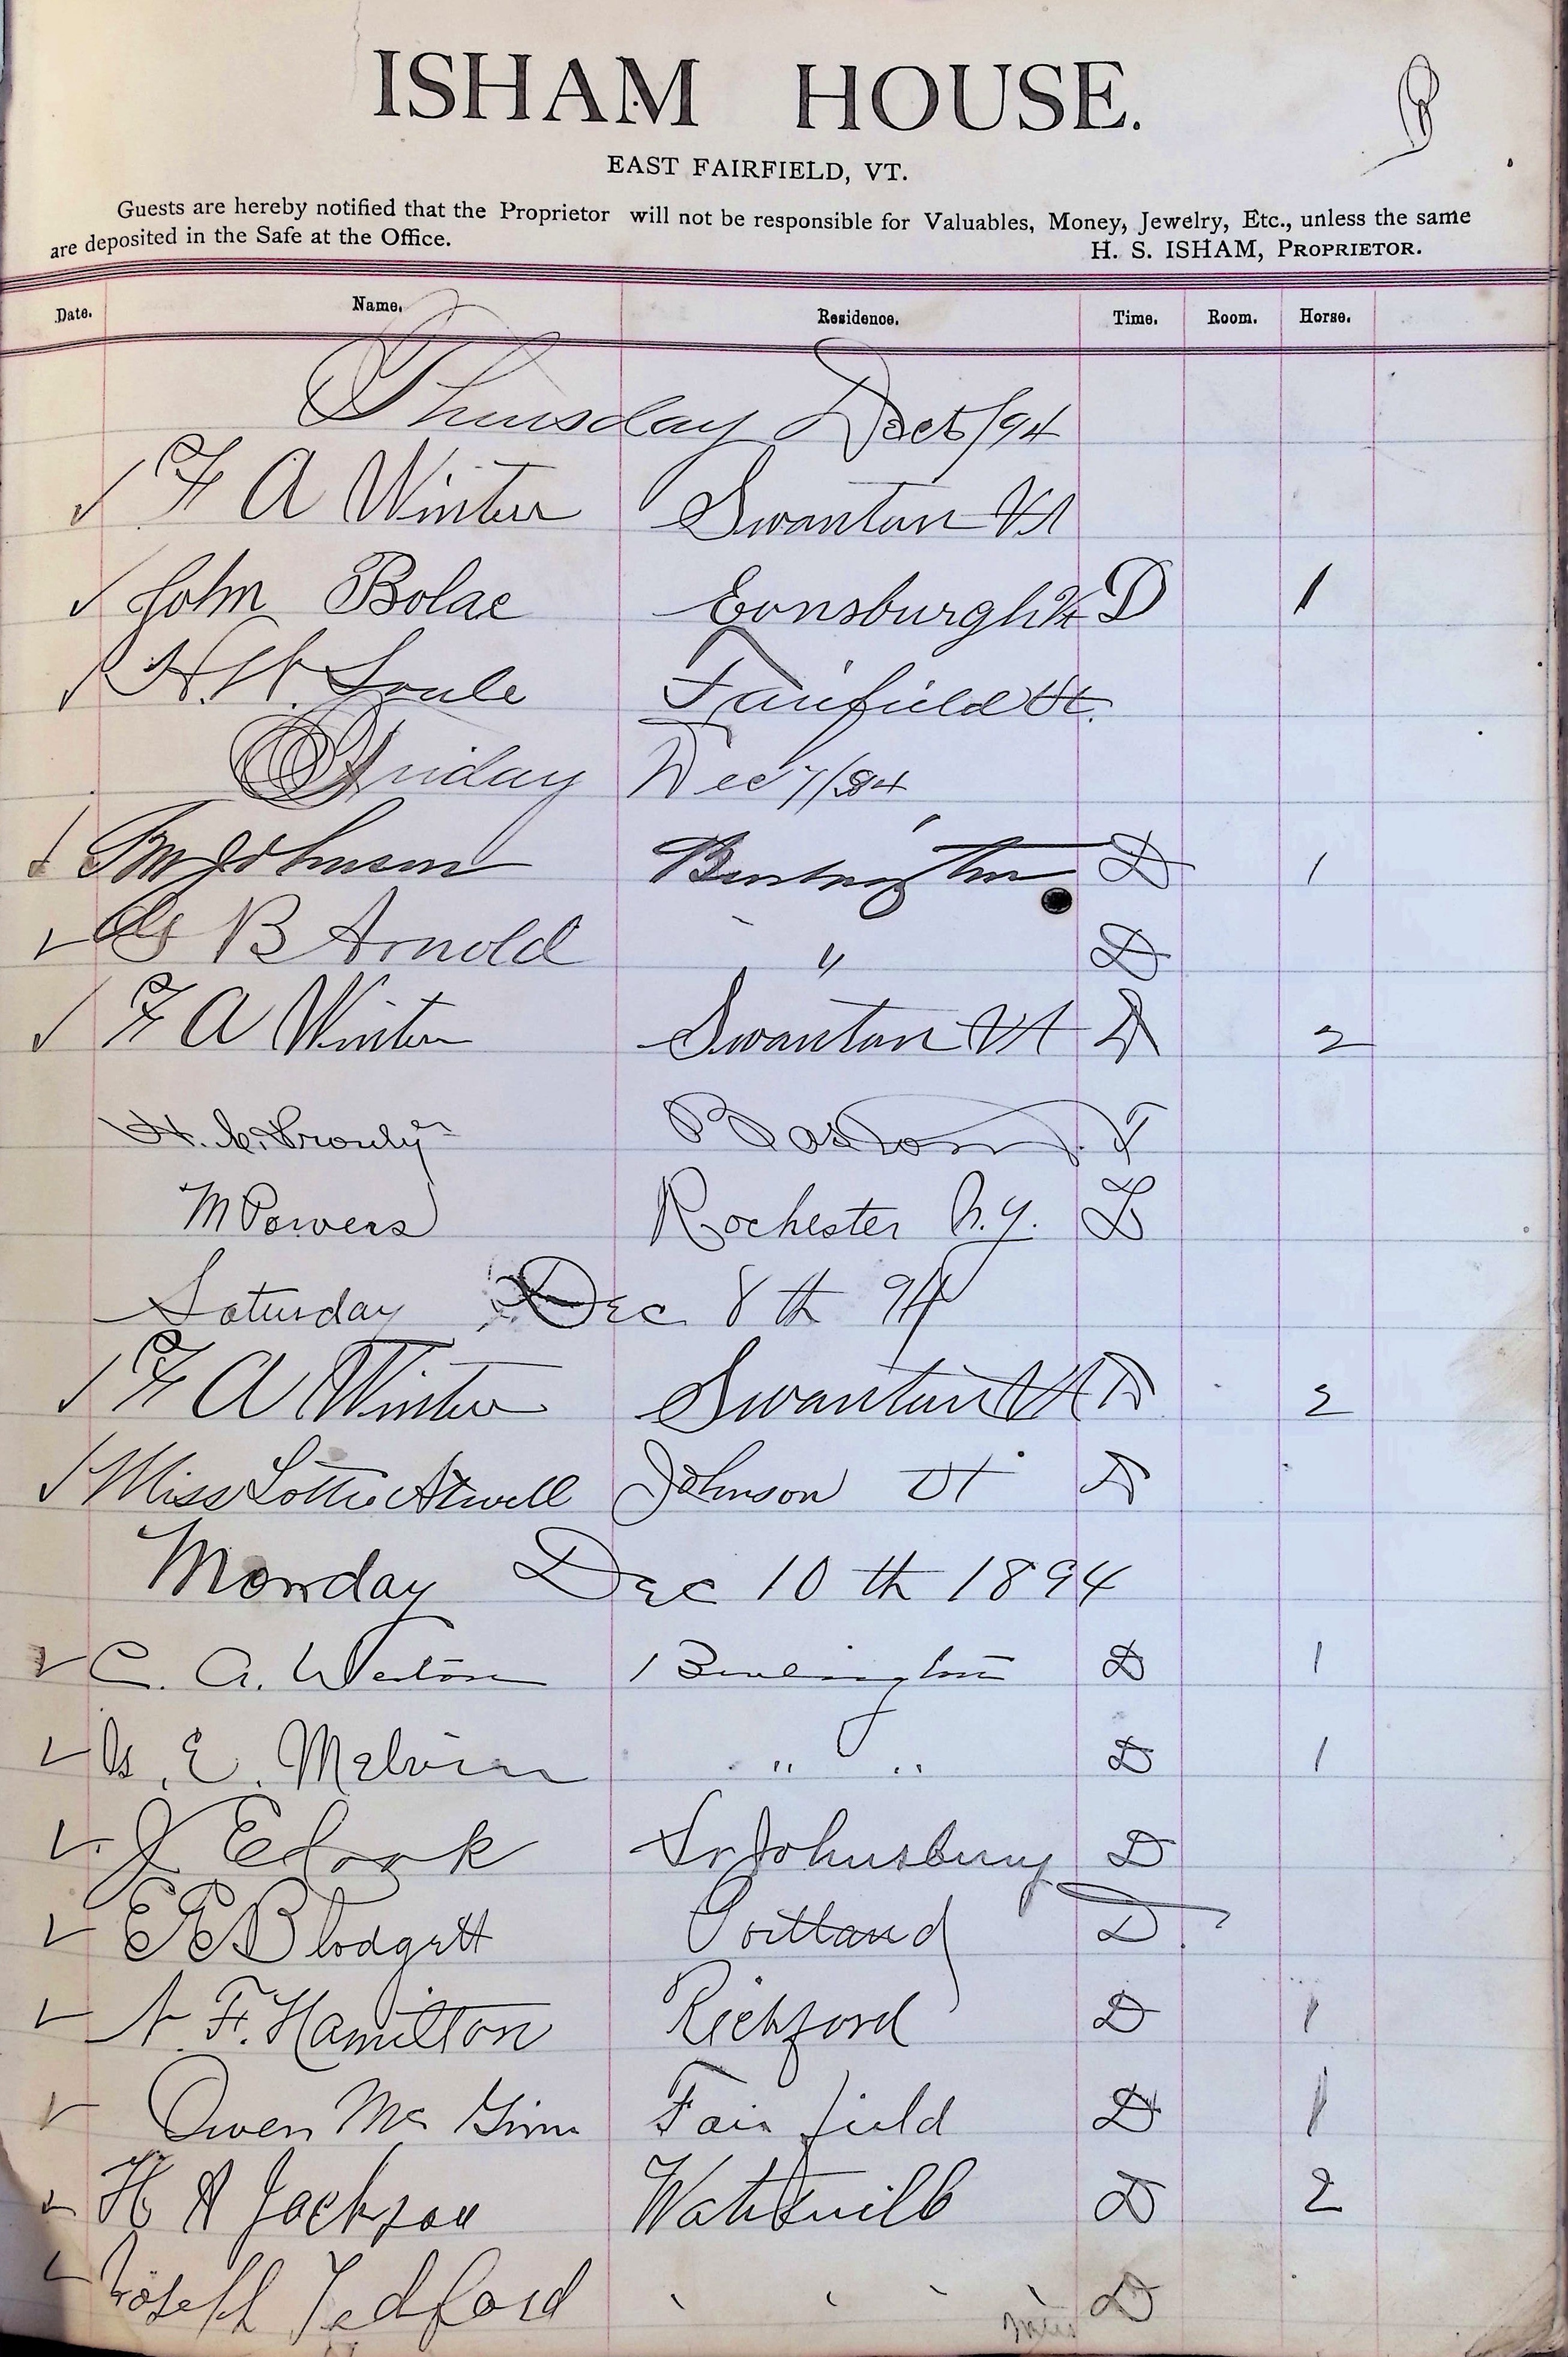 ISHAM HOUSE.
EAST FAIRFIELD, VT.
Guests are hereby notified that the Proprietor will not be responsible for Valuables, Money, Jewelry, Etc., unless the same
are deposited in the Safe at the Office.
H. S. ISHAM, PROPRIETOR.
Date. Name. Residence. Time. Room. Horse.
Thursday Dec 6/94
✓ F A Winter Swanton Vt
✓ John Bolac Eonsburgh Vt D 1
✓ H. W. Soule Fairfield Vt.
Friday Dec 7/94
✓ Johnson Burlington D 1
✓ G B Arnold " D
✓ F A Winter Swanton Vt D 2
H. C. Prouty Boston. T
M Powers Rochester N.Y. L
Saturday Dec 8th 94
✓ F A Winter Swanton Vt D 2
✓ Miss Lottie Atwell Johnson Vt D
Monday Dec 10th 1894
✓ C. A. Weston Burlington D 1
✓ G. E. Melvin " " D 1
✓ J E Cook St Johnsbury D
✓ E E Blodgett Portland D
✓ N. F. Hamilton Richford D 1
✓ Owen Mc Ginn Fairfield D 1
✓ H A Jackson Waterville D 2
✓ Joseph Tedford " " " D